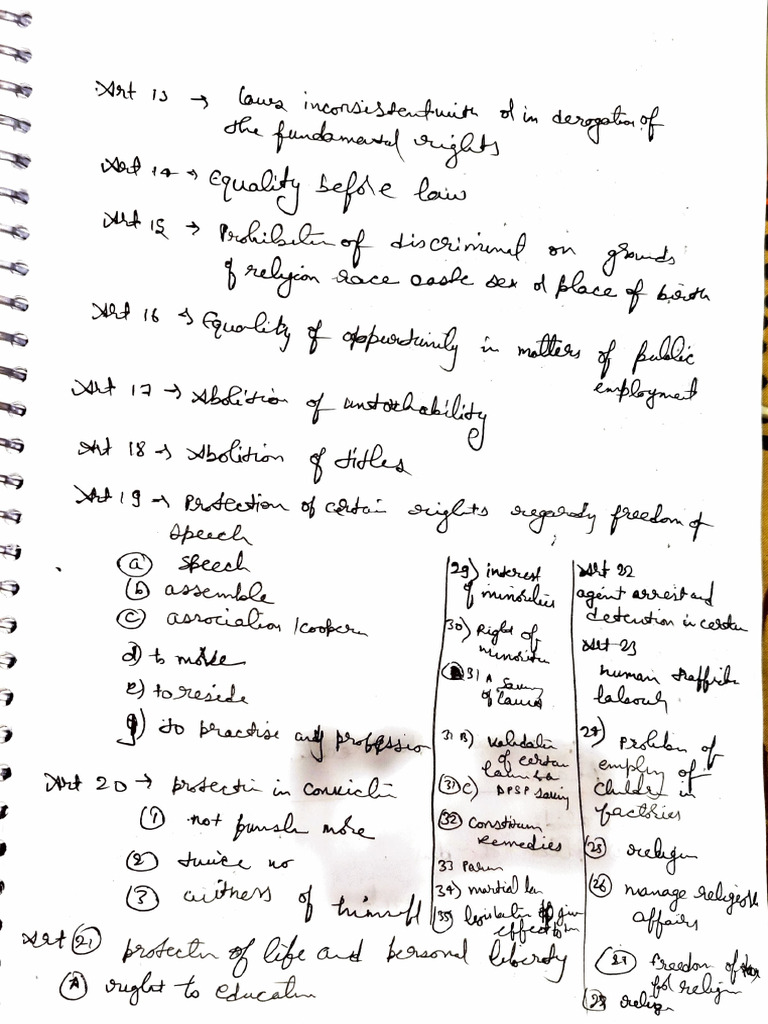 Art 13 → Laws inconsistent with or in derogation of
the fundamental rights
Art 14 → Equality before law
Art 15 → Prohibition of discriminat on grounds
of religion race caste sex or place of birth
Art 16 → Equality of opportunity in matters of public
employment
Art 17 → Abolition of untochability
Art 18 → Abolition of titles
Art 19 → Protection of certain rights regardg freedom of
speech
(a) speech
(b) assemble
(c) association /cooper
d) to move
e) to reside
g) to practise any professio
Art 20 → protectin in convictin
(1) not punsh more
(2) twice no
(3) witness of himself
Art (21) protectn of life and personal liberty
(A) right to education
29) interest
of minorities
30) Right of
minorities
31 A Saving
of laws
31 B) Validation
of certan
laws
(31) C) DPSP saving
(32) Constitution
Remedies
33 Parm
34) martial la
(35) legislation to give
effect
Art 22
agent arrest and
detention in certan
Art 23
human traffick
labour
24) Prohibn of
employ of
childrn in
factories
(25) relign
(26) manage religious
affairs
(27) freedom of tax
for religin
(28) relign